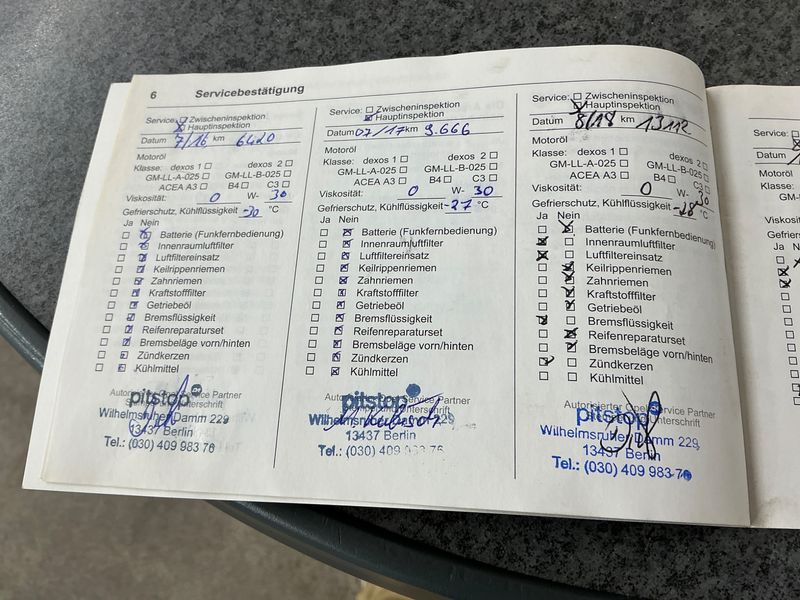 6 Servicebestätigung
Service: ☐ Zwischeninspektion
☒ Hauptinspektion
Datum 7/16 km 6420
Motoröl
Klasse: dexos 1 ☐ dexos 2 ☐
GM-LL-A-025 ☐ GM-LL-B-025 ☐
ACEA A3 ☐ B4 ☐ C3 ☐
Viskosität: 0 W- 30
Gefrierschutz, Kühlflüssigkeit -30 °C
Ja Nein
☐ ☒ Batterie (Funkfernbedienung)
☐ ☒ Innenraumluftfilter
☐ ☒ Luftfiltereinsatz
☐ ☒ Keilrippenriemen
☐ ☒ Zahnriemen
☐ ☒ Kraftstofffilter
☐ ☒ Getriebeöl
☐ ☒ Bremsflüssigkeit
☐ ☒ Reifenreparaturset
☐ ☒ Bremsbeläge vorn/hinten
☐ ☒ Zündkerzen
☐ ☒ Kühlmittel
pitstop
Wilhelmsruher Damm 229
13437 Berlin
Tel.: (030) 409 983 76
Service: ☐ Zwischeninspektion
☒ Hauptinspektion
Datum 07/17 km 9.666
Motoröl
Klasse: dexos 1 ☐ dexos 2 ☐
GM-LL-A-025 ☐ GM-LL-B-025 ☐
ACEA A3 ☐ B4 ☐ C3 ☐
Viskosität: 0 W- 30
Gefrierschutz, Kühlflüssigkeit -27 °C
Ja Nein
☐ ☒ Batterie (Funkfernbedienung)
☐ ☒ Innenraumluftfilter
☐ ☒ Luftfiltereinsatz
☐ ☒ Keilrippenriemen
☐ ☒ Zahnriemen
☐ ☒ Kraftstofffilter
☐ ☒ Getriebeöl
☐ ☒ Bremsflüssigkeit
☐ ☒ Reifenreparaturset
☐ ☒ Bremsbeläge vorn/hinten
☐ ☒ Zündkerzen
☐ ☒ Kühlmittel
pitstop
13437 Berlin
Tel.: (030) 409 983 76
Service: ☐ Zwischeninspektion
☒ Hauptinspektion
Datum 8/18 km 13112
Motoröl
Klasse: dexos 1 ☐ dexos 2 ☐
GM-LL-A-025 ☐ GM-LL-B-025 ☐
ACEA A3 ☐ B4 ☐ C3 ☐
Viskosität: 0 W- 30
Gefrierschutz, Kühlflüssigkeit -28 °C
Ja Nein
☐ ☒ Batterie (Funkfernbedienung)
☒ ☐ Innenraumluftfilter
☒ ☐ Luftfiltereinsatz
☐ ☒ Keilrippenriemen
☐ ☒ Zahnriemen
☐ ☒ Kraftstofffilter
☐ ☒ Getriebeöl
☒ ☐ Bremsflüssigkeit
☐ ☒ Reifenreparaturset
☐ ☒ Bremsbeläge vorn/hinten
☒ ☐ Zündkerzen
☐ ☐ Kühlmittel
Autorisierter Opel Service Partner
pitstop Unterschrift
Wilhelmsruher Damm 229
13437 Berlin
Tel.: (030) 409 983 76